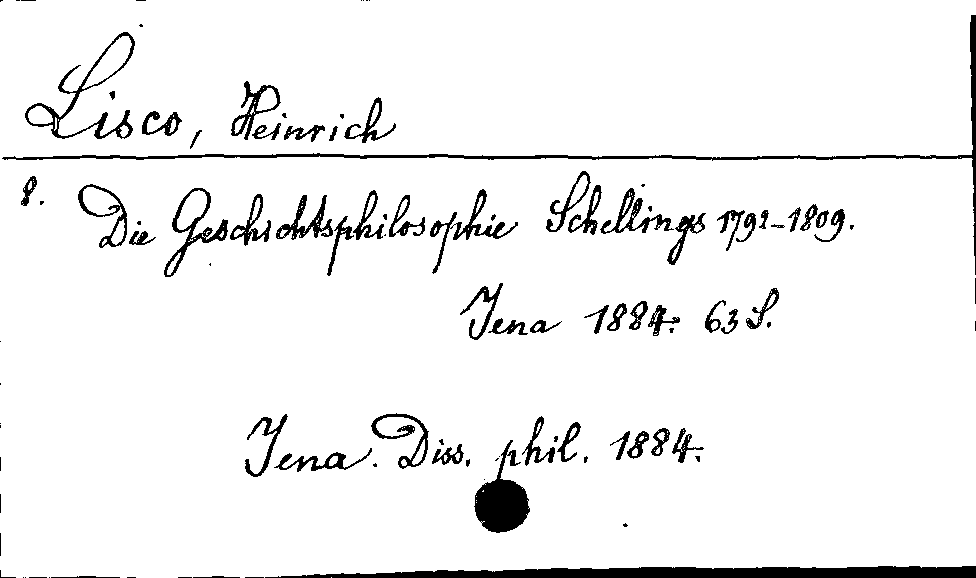 Lisco, Heinrich
8. Die Geschichtsphilosophie Schellings 1792-1809.
Jena 1884. 63 S.
Jena. Diss. phil. 1884.